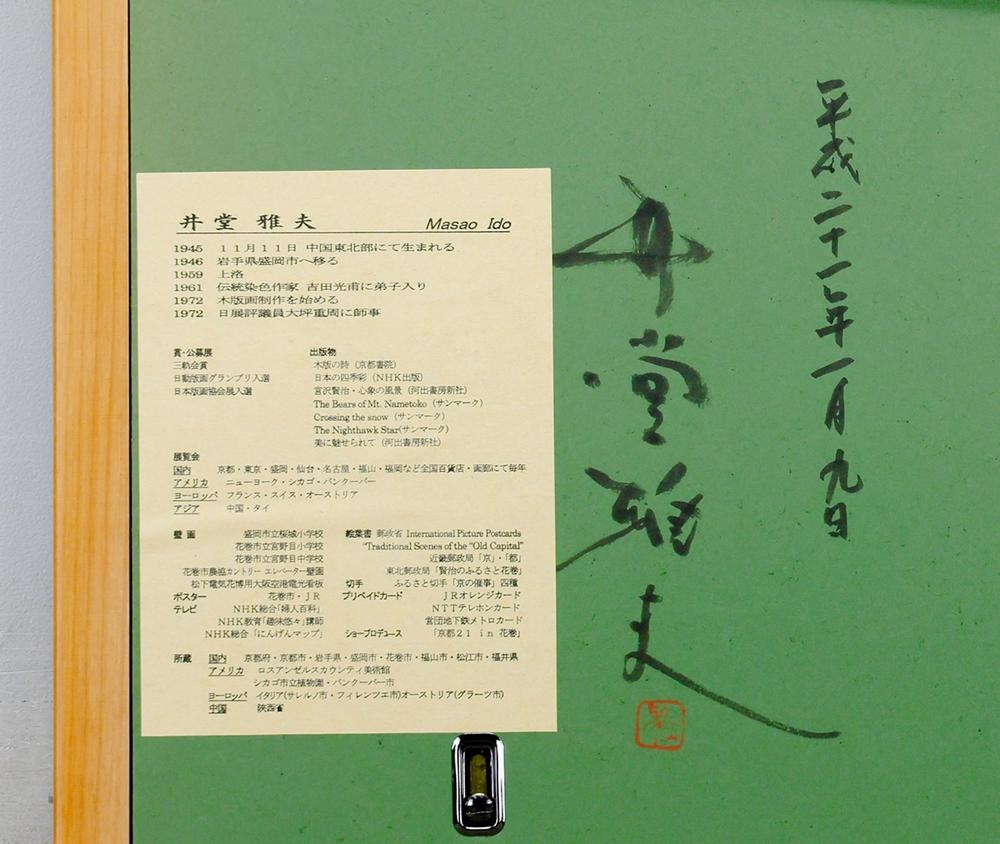 井堂 雅夫 Masao Ido
1945 11月11日 中国東北部にて生まれる
1946 岩手県盛岡市へ移る
1959 上洛
1961 伝統染色作家 吉田光甫に弟子入り
1972 木版画制作を始める
1972 日展評議員大坪重周に師事
賞・公募展
三軌会賞
日動版画グランプリ入選
日本版画協会展入選
出版物
木版の詩（京都書院）
日本の四季彩（NHK出版）
宮沢賢治・心象の風景（河出書房新社）
The Bears of Mt. Nametoko（サンマーク）
Crossing the snow（サンマーク）
The Nighthawk Star(サンマーク)
美に魅せられて（河出書房新社）
展覧会
国内 京都・東京・盛岡・仙台・名古屋・福山・福岡など全国百貨店・画廊にて毎年
アメリカ ニューヨーク・シカゴ・バンクーバー
ヨーロッパ フランス・スイス・オーストリア
アジア 中国・タイ
壁画 盛岡市立桜城小学校
花巻市立宮野目小学校
花巻市立宮野目中学校
花巻市農協カントリーエレベーター壁画
松下電気花博用大阪空港電光看板
ポスター 花巻市・JR
テレビ NHK総合「婦人百科」
NHK教育「趣味悠々」講師
NHK総合「にんげんマップ」
絵葉書 郵政省 International Picture Postcards
"Traditional Scenes of the "Old Capital"
近畿郵政局「京」・「都」
東北郵政局「賢治のふるさと花巻」
切手 ふるさと切手「京の催事」四種
プリペイドカード JRオレンジカード
NTTテレホンカード
営団地下鉄メトロカード
ショープロデュース 「京都21 in 花巻」
所蔵 国内 京都府・京都市・岩手県・盛岡市・花巻市・福山市・松江市・福井県
アメリカ ロスアンゼルスカウンティ美術館
シカゴ市立植物園・バンクーバー市
ヨーロッパ イタリア(サレルノ市・フィレンツエ市)オーストリア(グラーツ市)
中国 陝西省
平成二十一年一月九日
井堂雅夫